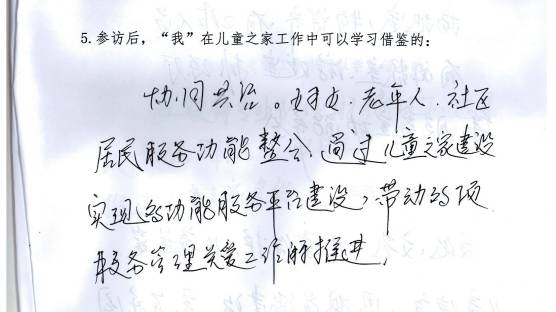 5.参访后，“我”在儿童之家工作中可以学习借鉴的：
协同共治。妇女.老年人.社区
居民服务功能整合、通过儿童之家建设
实现的功能服务平台建设，带动的项
服务管理关爱工作推进，